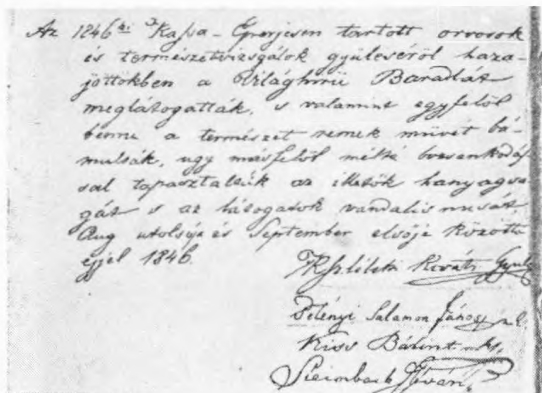 Az 1846ki Kassa-Eperjesen tartott orvosok
és természetvizsgálók gyüléséröl haza-
jöttökben a Világhirü Baradlát
meglátogatták, s valamint egyfelöl
benne a természet remek müvét bá-
multák, ugy másfelöl méltó boszankodás-
sal tapasztalták az illetök hanyagsá-
gát s az látogatok vandalismusát,
Aug utolsója és September elsöje közötti
éjjel 1846.
Kováts Gyula
Petényi Salamon János
Kiss Bálint
István